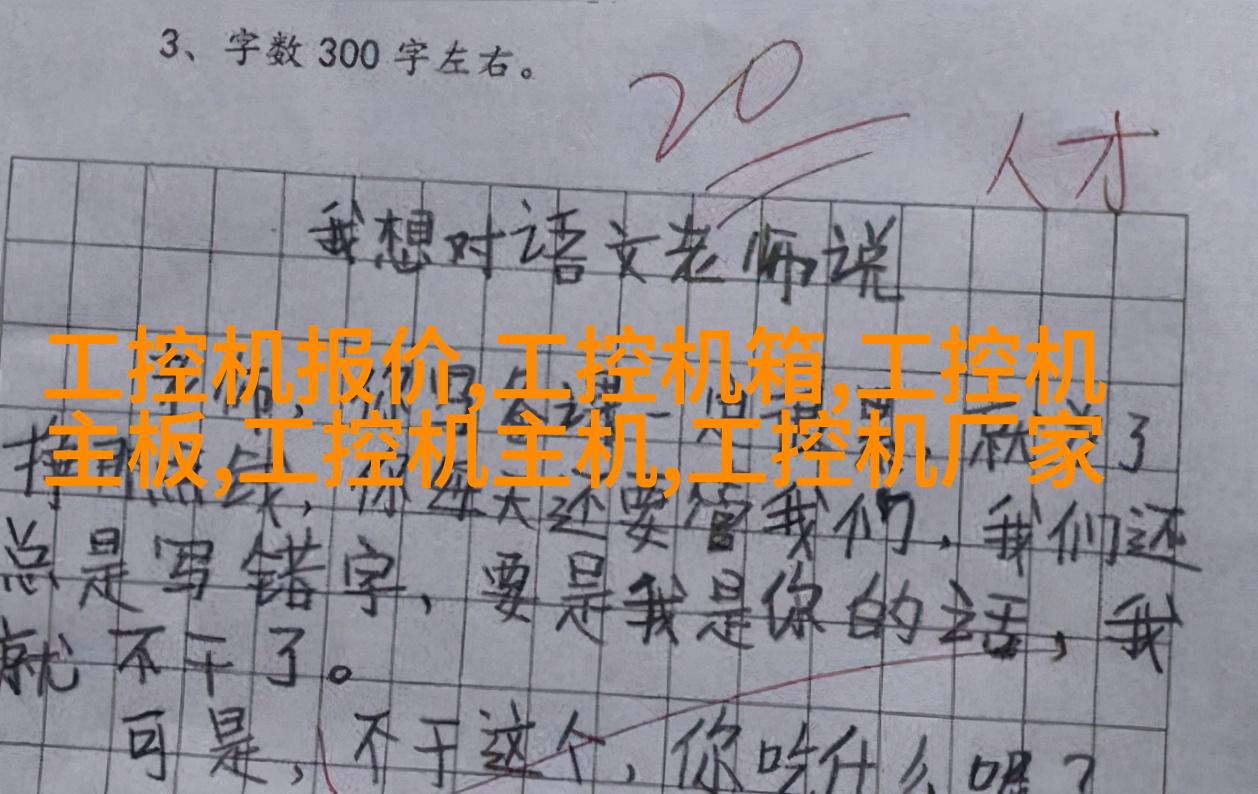 3、字数300字左右。
20
人才
我想对语文老师说
工控机报价,工控机箱,工控机
主板,工控机主机,工控机厂家
了
你 天还要管我们，我们还
总是写错字，要是我是你的话，我
就不干了。
可是，不干这个，你吃什么呢？